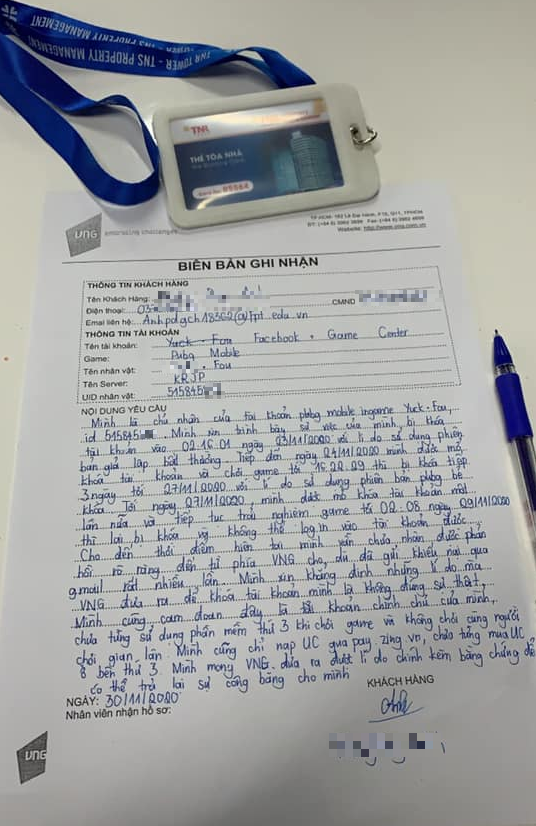 TNR TOWER - TNS PROPERTY MANAGEMENT
TNR TOWER - TNS PROPERTY MANAGEMENT
TNR
THẺ TÒA NHÀ
05564
VNG embracing challenges
TP.HCM: 182 Lê Đại Hành, P15, Q11, TPHCM
Website: http://www.vng.com.vn
BIÊN BẢN GHI NHẬN
THÔNG TIN KHÁCH HÀNG
Tên Khách Hàng:
CMND
Điện thoại: 03
Email liên hệ: Anhpdgch18362@fpt.edu.vn
THÔNG TIN TÀI KHOẢN
Tên tài khoản: Yuck - Fou Facebook + Game Center
Game: Pubg Mobile
Tên nhân vật: Fou
Tên Server: KRJP
UID nhân vật: 515845
NỘI DUNG YÊU CẦU
Mình là chủ nhân của tài khoản pubg mobile ingame Yuck - Fou,
id 515845 . Mình xin trình bày sự việc của mình bị khóa
tài khoản vào 02.16.01 ngày 23/11/2020 với lí do sử dụng phiên
bản giả lập bất thường. Tiếp đến ngày 24/11/2020 mình được mở
khóa tài khoản và chơi game tới 15.22.29 thì bị khóa tiếp
3 ngày tới 27/11/2020 với lí do sử dụng phiên bản pubg bẻ
khóa. Tới ngày 27/11/2020 mình được mở khóa tài khoản một
lần nữa và tiếp tục trải nghiệm game tới 02.08 ngày 29/11/2020
thì lại bị khóa không thể log in vào tài khoản được.
Cho đến thời điểm hiện tại mình vẫn chưa nhận được phản
hồi rõ ràng đến từ phía VNG cho dù đã gửi khiếu nại qua
gmail rất nhiều lần. Mình xin khẳng định những lí do mà
VNG đưa ra để khóa tài khoản mình là không đúng sự thật.
Mình cũng cam đoan đây là tài khoản chính chủ của mình,
chưa từng sử dụng phần mềm thứ 3 khi chơi game và không chơi cùng người
chơi gian lận. Mình cũng chỉ nạp UC qua pay zing vn, chưa từng mua UC
ở bên thứ 3. Mình mong VNG đưa ra được lí do chính kèm bằng chứng để
có thể trả lại sự công bằng cho mình
KHÁCH HÀNG
NGÀY: 30/11/2020
Nhân viên nhận hồ sơ:
VNG